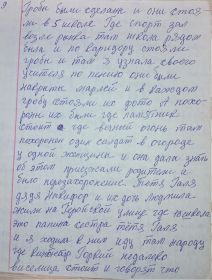 9
Гробы были сделаны и они стоя-
ли в 5 школе Где спорт зал
возле рынка там школа рядом
была и по коридору стояли
гробы и там я узнала своего
учителя по пению они были
накрыты марлей и в каждом
гробу стояли их фото А похо-
роне их были где памятник
стоит где вечной огонь там
похоронен один солдат в огороде
у одной женщины и она дала знать
об этом приезжали родители и
было перезахоронение. Тётя Галя
дядя Никифор и их дочь Людмила
жили на Геройской улице где больница
это папина сестра тётя Галя
и я ходила к ним иду там народу
где кинотеатр Горький недалеко
виселица стоит и говорят что